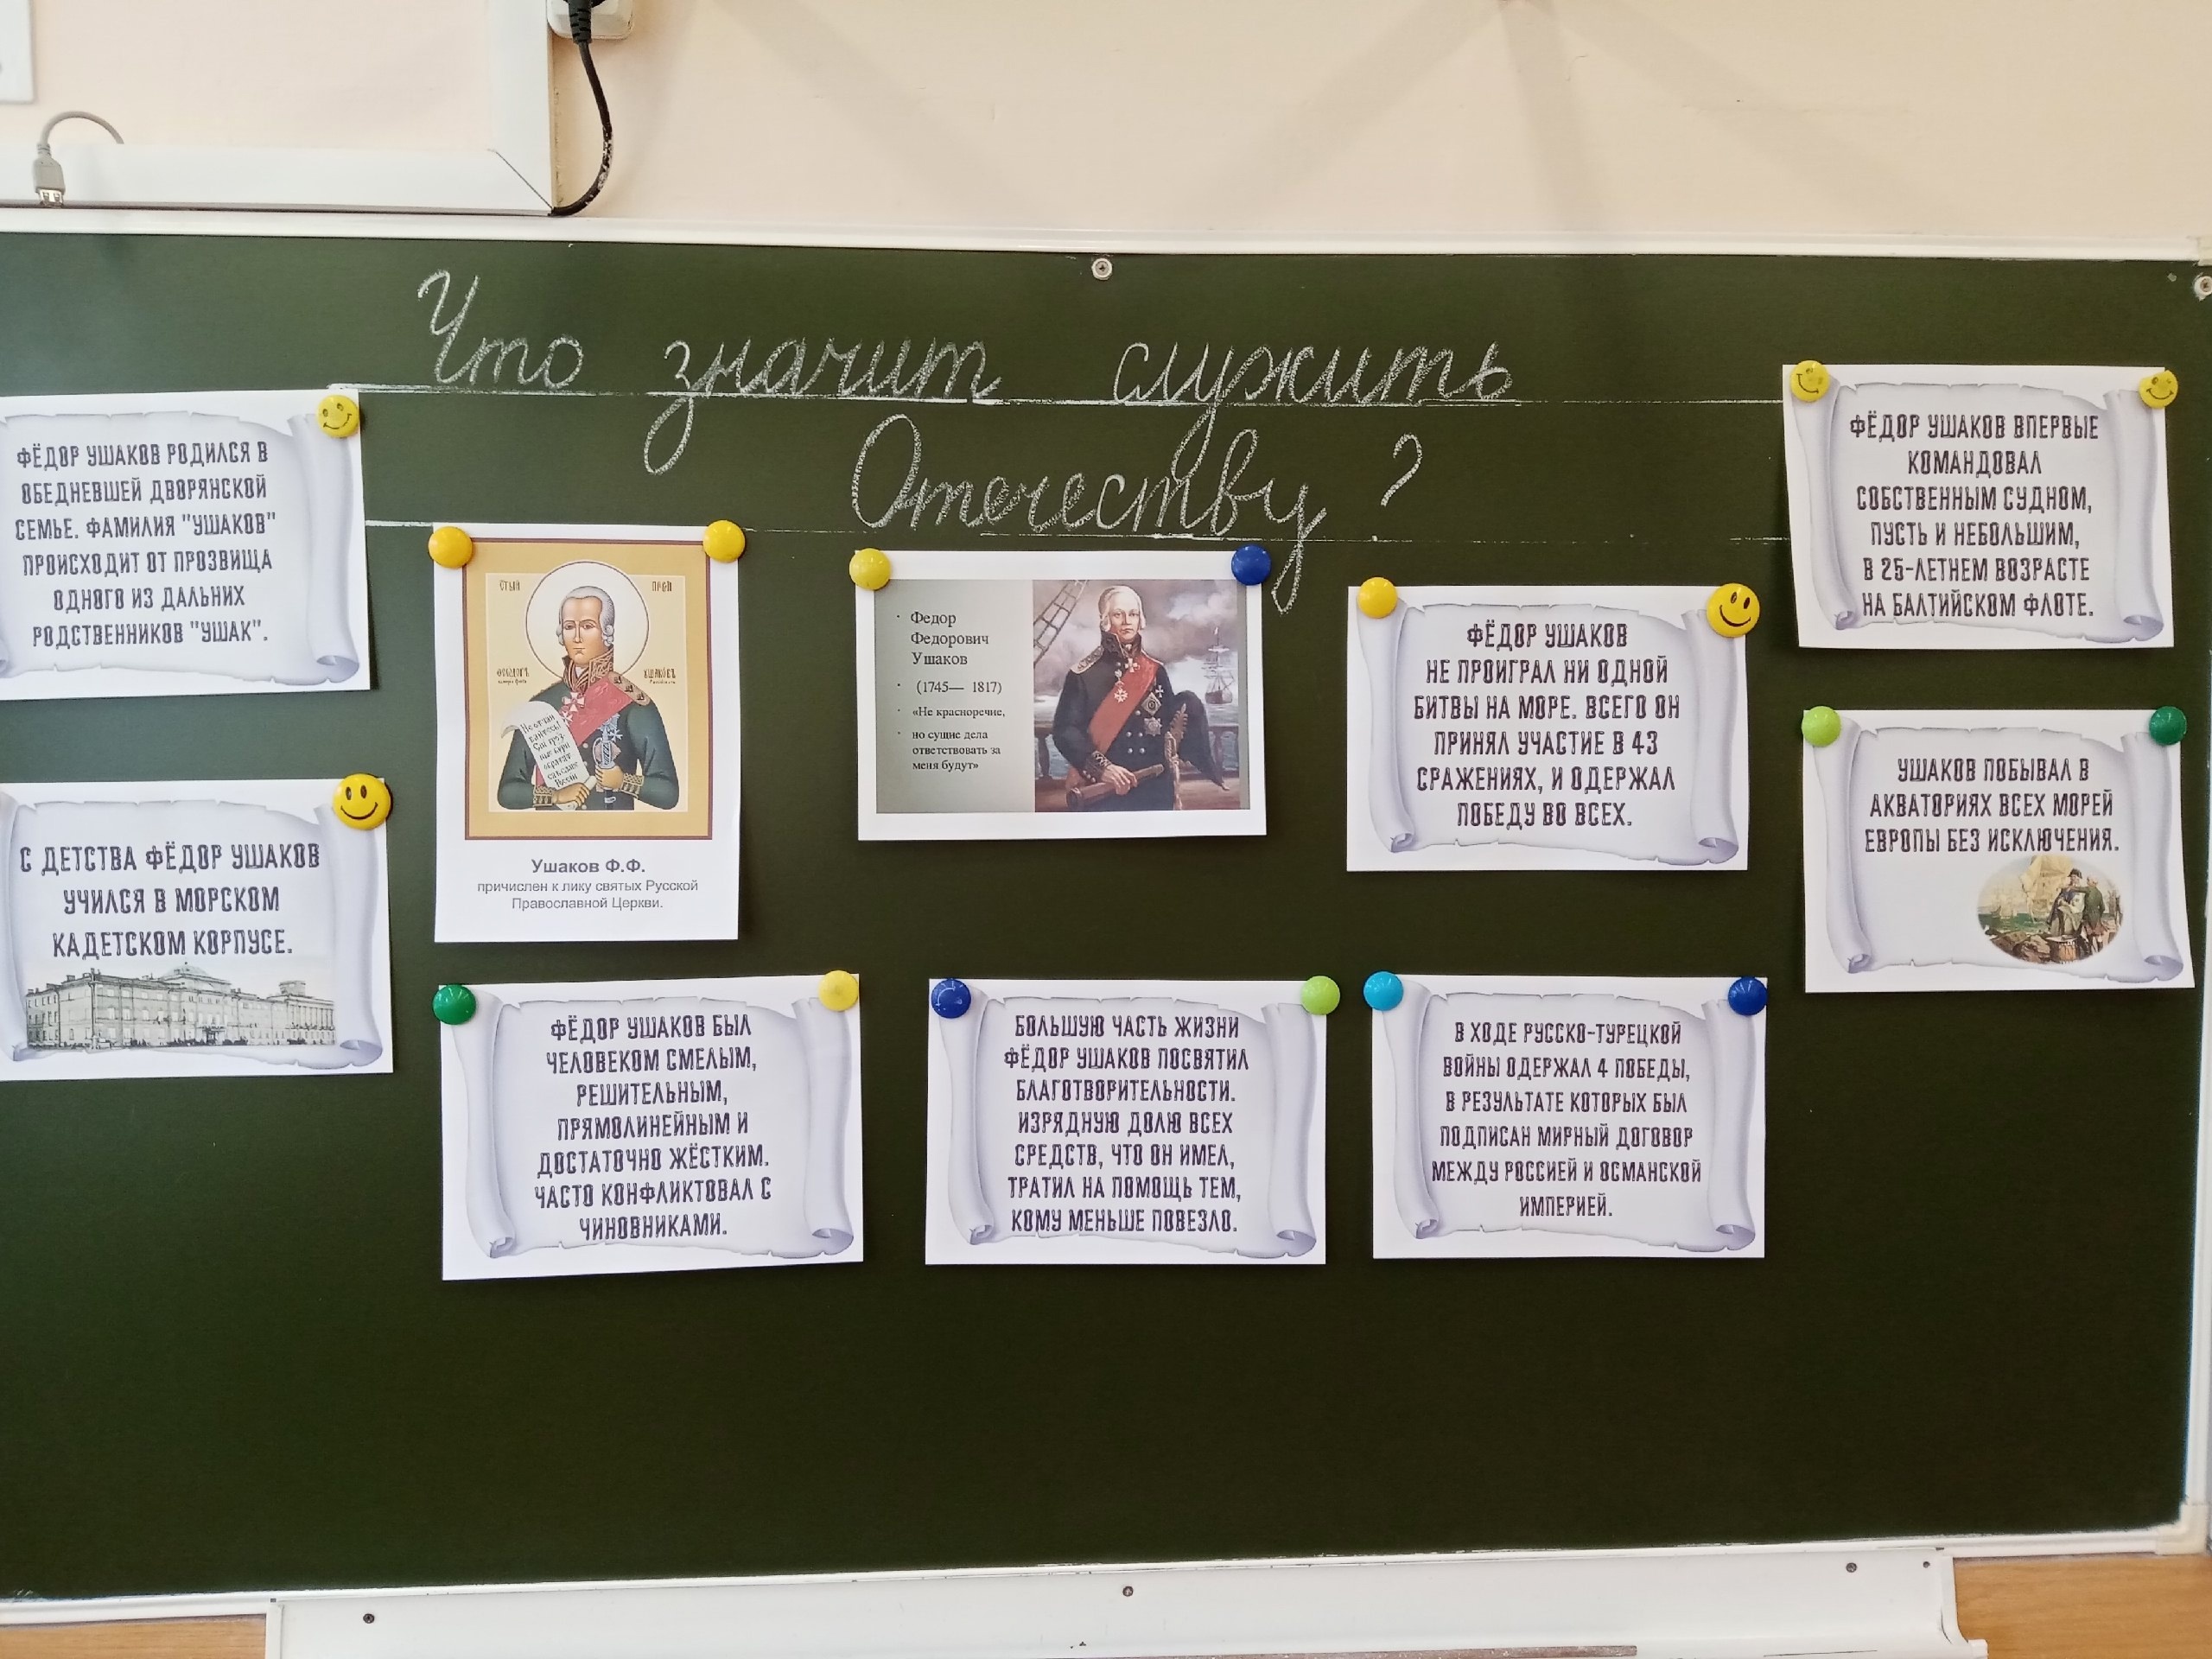 Что значит служить
Отечеству?
ФЁДОР УШАКОВ РОДИЛСЯ В
ОБЕДНЕВШЕЙ ДВОРЯНСКОЙ
СЕМЬЕ. ФАМИЛИЯ "УШАКОВ"
ПРОИСХОДИТ ОТ ПРОЗВИЩА
ОДНОГО ИЗ ДАЛЬНИХ
РОДСТВЕННИКОВ "УШАК".
С ДЕТСТВА ФЁДОР УШАКОВ
УЧИЛСЯ В МОРСКОМ
КАДЕТСКОМ КОРПУСЕ.
Ушаков Ф.Ф.
причислен к лику святых Русской
Православной Церкви.
· Федор
Федорович
Ушаков
· (1745— 1817)
· «Не красноречие,
· но сущие дела
ответствовать за
меня будут»
ФЁДОР УШАКОВ
НЕ ПРОИГРАЛ НИ ОДНОЙ
БИТВЫ НА МОРЕ. ВСЕГО ОН
ПРИНЯЛ УЧАСТИЕ В 43
СРАЖЕНИЯХ, И ОДЕРЖАЛ
ПОБЕДУ ВО ВСЕХ.
ФЁДОР УШАКОВ ВПЕРВЫЕ
КОМАНДОВАЛ
СОБСТВЕННЫМ СУДНОМ,
ПУСТЬ И НЕБОЛЬШИМ,
В 25-ЛЕТНЕМ ВОЗРАСТЕ
НА БАЛТИЙСКОМ ФЛОТЕ.
УШАКОВ ПОБЫВАЛ В
АКВАТОРИЯХ ВСЕХ МОРЕЙ
ЕВРОПЫ БЕЗ ИСКЛЮЧЕНИЯ.
ФЁДОР УШАКОВ БЫЛ
ЧЕЛОВЕКОМ СМЕЛЫМ,
РЕШИТЕЛЬНЫМ,
ПРЯМОЛИНЕЙНЫМ И
ДОСТАТОЧНО ЖЁСТКИМ.
ЧАСТО КОНФЛИКТОВАЛ С
ЧИНОВНИКАМИ.
БОЛЬШУЮ ЧАСТЬ ЖИЗНИ
ФЁДОР УШАКОВ ПОСВЯТИЛ
БЛАГОТВОРИТЕЛЬНОСТИ.
ИЗРЯДНУЮ ДОЛЮ ВСЕХ
СРЕДСТВ, ЧТО ОН ИМЕЛ,
ТРАТИЛ НА ПОМОЩЬ ТЕМ,
КОМУ МЕНЬШЕ ПОВЕЗЛО.
В ХОДЕ РУССКО-ТУРЕЦКОЙ
ВОЙНЫ ОДЕРЖАЛ 4 ПОБЕДЫ,
В РЕЗУЛЬТАТЕ КОТОРЫХ БЫЛ
ПОДПИСАН МИРНЫЙ ДОГОВОР
МЕЖДУ РОССИЕЙ И ОСМАНСКОЙ
ИМПЕРИЕЙ.